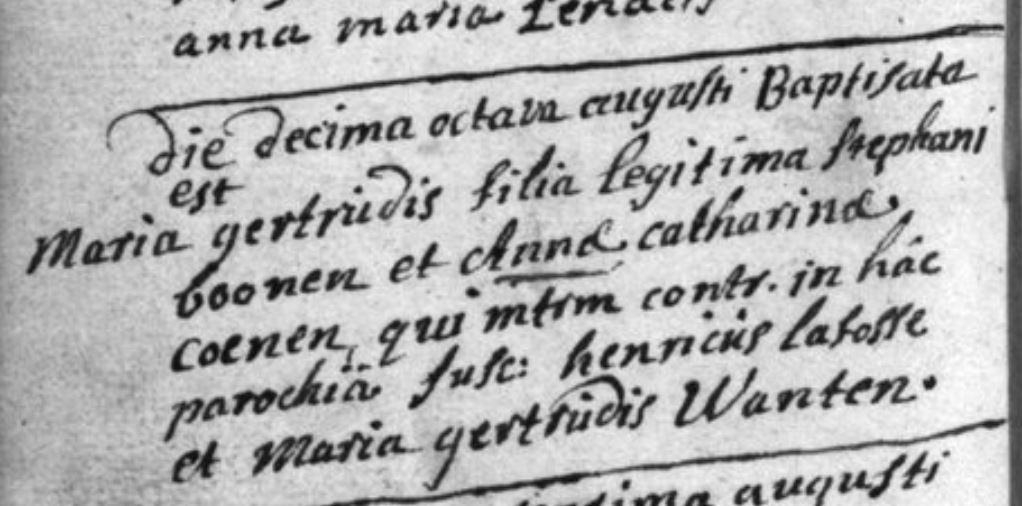 anna maria
die decima octava augusti Baptisata
est
Maria gertrudis filia legitima stephani
boonen et Annæ catharinæ
coenen, qui mtrm contr. in hâc
parochiâ susc: henricus lafosse
et Maria gertrudis Wanten.
augusti